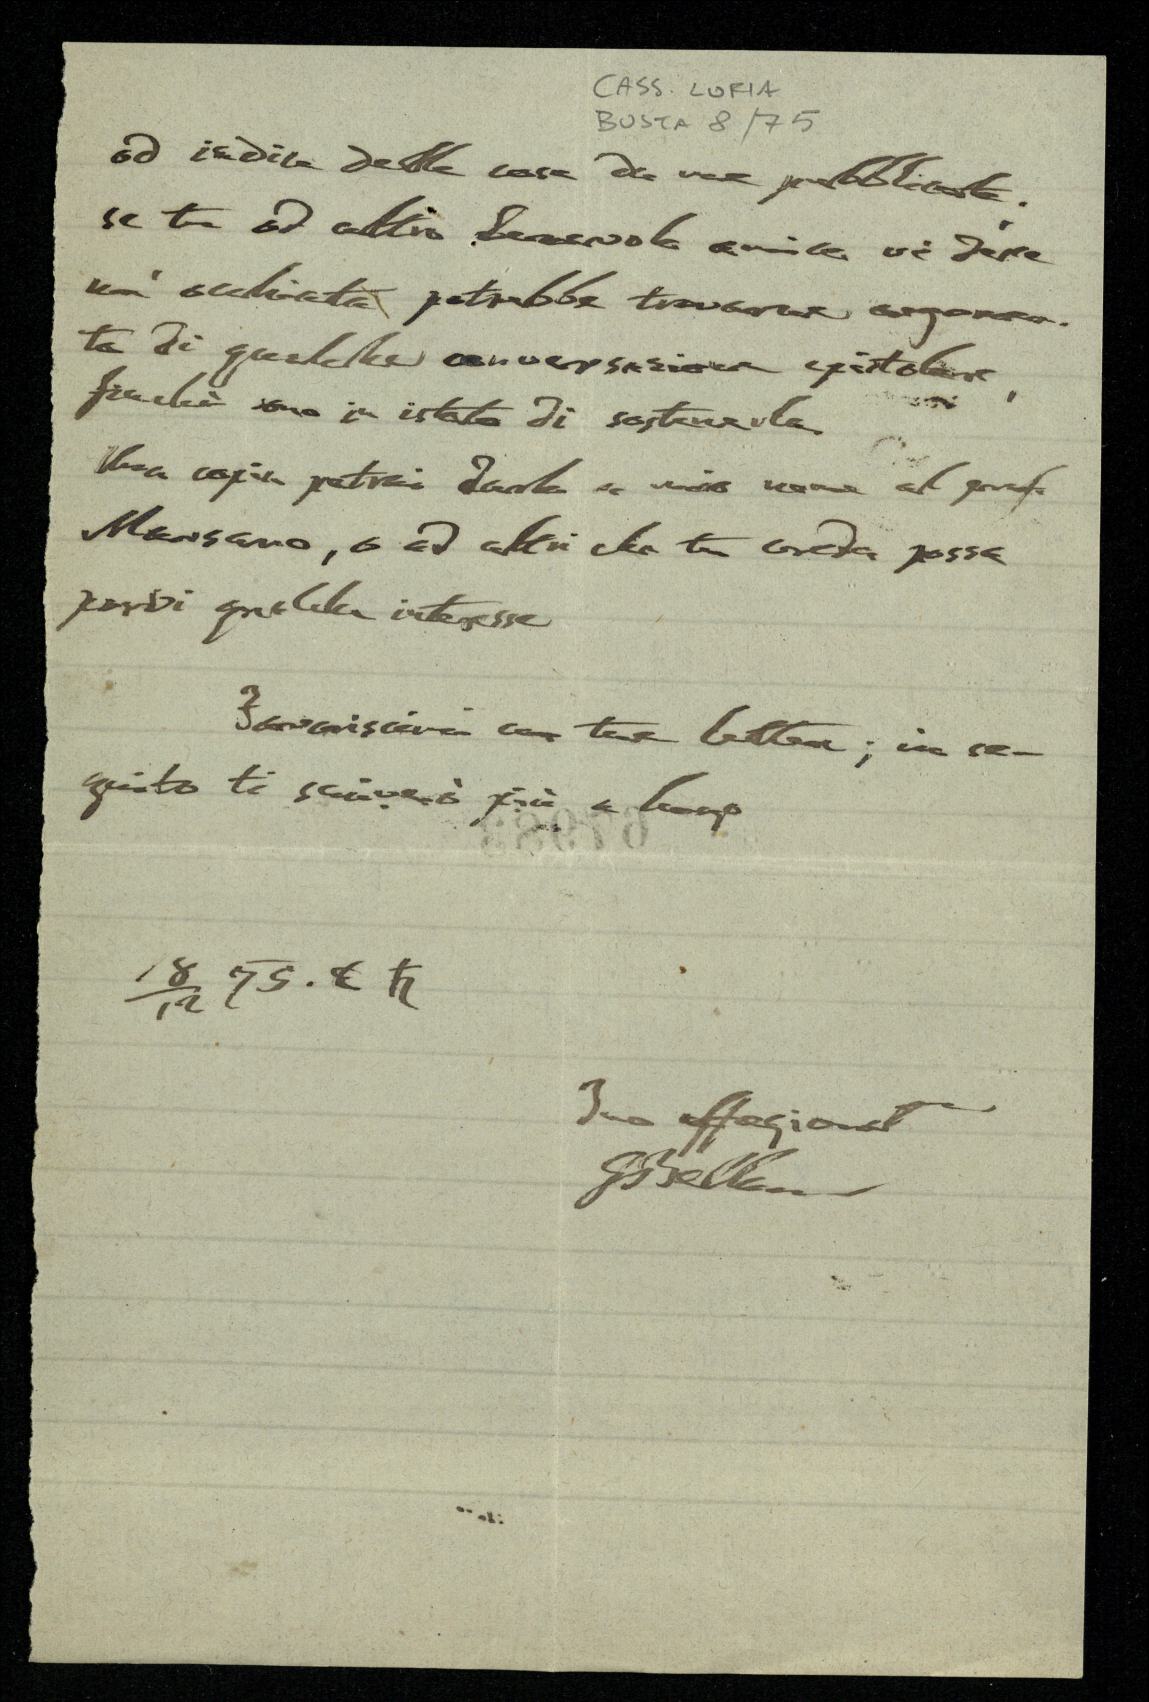 CASS. LORIA
BUSTA 8/75
od indice delle cose da me pubblicate.
se tu od altro benevolo amico vi desse
un' occhiata potrebbe trovarne argomen-
to di qualche conversazione epistolare,
finchè sono in istato di sostenerla.
Una copia potrai darla a mio nome al prof.
Marsano, o ad altri che tu creda possa
porvi qualche interesse
Favoriscimi con tue lettere; in se-
guito ti scriverò più a lungo
18/12 75. ♄
67983
Tuo affezionat
GBellav